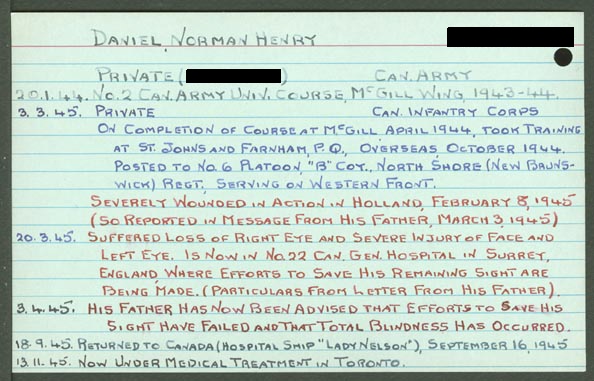 DANIEL, NORMAN HENRY
PRIVATE ( ) CAN. ARMY
20.1.44. NO. 2 CAN. ARMY UNIV. COURSE, MCGILL WING, 1943-44.
3. 3. 45. PRIVATE CAN. INFANTRY CORPS
ON COMPLETION OF COURSE AT MCGILL APRIL 1944, TOOK TRAINING
AT ST. JOHNS AND FARNHAM, P.Q., OVERSEAS, OCTOBER 1944.
POSTED TO NO. 6 PLATOON, "B" COY., NORTH SHORE (NEW BRUNS-
WICK) REGT., SERVING ON WESTERN FRONT.
SEVERELY WOUNDED IN ACTION IN HOLLAND, FEBRUARY 8, 1945
(SO REPORTED IN MESSAGE FROM HIS FATHER, MARCH 3, 1945)
20. 3. 45. SUFFERED LOSS OF RIGHT EYE AND SEVERE INJURY OF FACE AND
LEFT EYE. IS NOW IN NO. 22 CAN. GEN. HOSPITAL IN SURREY,
ENGLAND, WHERE EFFORTS TO SAVE HIS REMAINING SIGHT ARE
BEING MADE. (PARTICULARS FROM LETTER FROM HIS FATHER).
3. 4. 45. HIS FATHER HAS NOW BEEN ADVISED THAT EFFORTS TO SAVE HIS
SIGHT HAVE FAILED AND THAT TOTAL BLINDNESS HAS OCCURRED.
18. 9. 45. RETURNED TO CANADA (HOSPITAL SHIP "LADY NELSON"), SEPTEMBER 16, 1945
13. 11. 45. NOW UNDER MEDICAL TREATMENT IN TORONTO.